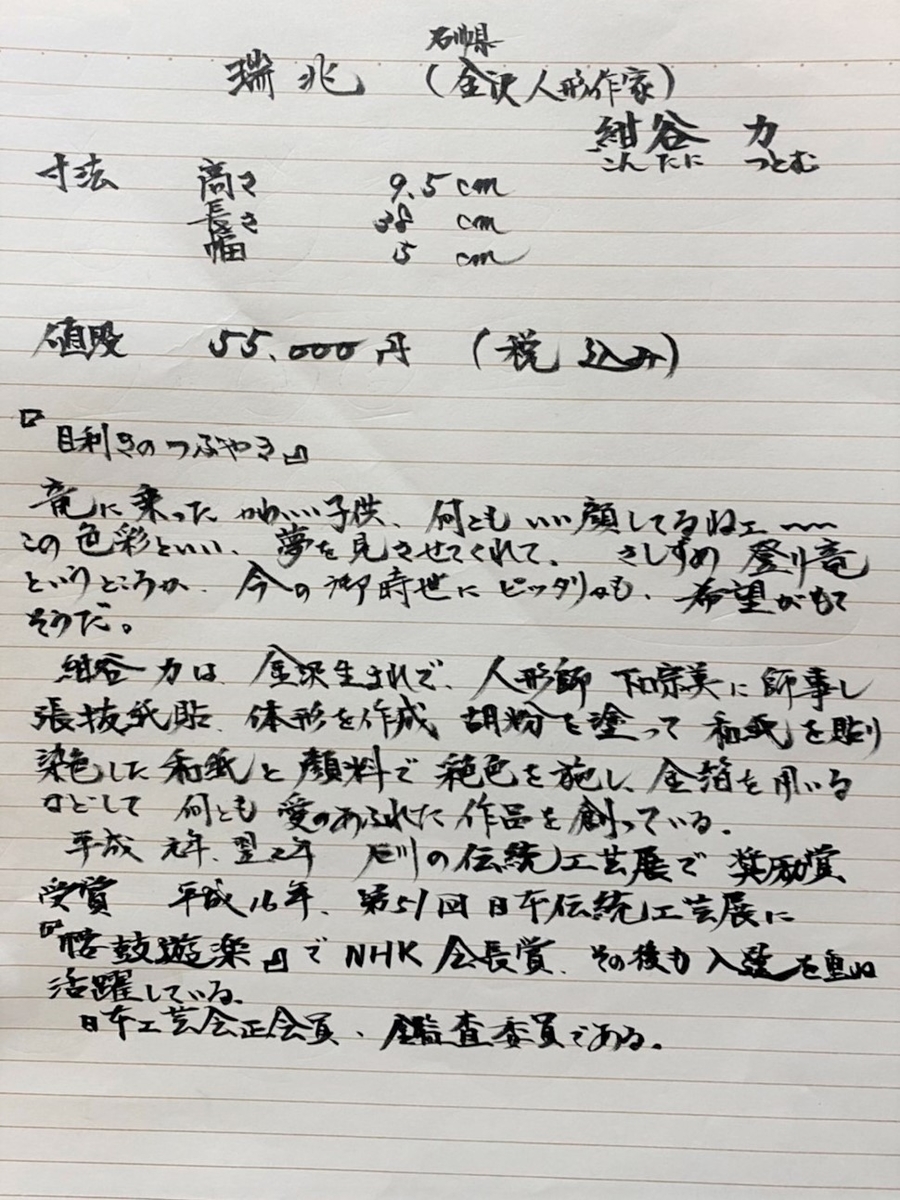 石川県
瑞兆 (金沢人形作家)
紺谷 力
こんたに つとむ
寸法 高さ 9.5cm
長さ 38 cm
幅 15 cm
値段 55,000円 (税込み)
『目利きのつぶやき』
竜に乗ったかわいい子供、何ともいい顔してるねェ〜〜
この色彩といい、夢を見させてくれて、さしずめ登り竜
というところか、今の御時世にピッタリかも、希望がもて
そうだ。
紺谷 力は、金沢生まれで、人形師 下口宗美に師事し
張抜紙貼、体形を作成 胡粉を塗って和紙を貼り
染色した和紙と顔料で彩色を施し、金箔を用いる
などして何とも愛のあふれた作品を創っている。
平成元年、翌2年 石川の伝統工芸展で奨励賞
受賞 平成16年、第51回日本伝統工芸展に
鼓遊楽』でNHK会長賞、その後も入選を重ね
活躍している。
日本工芸会正会員、鑑査委員である。